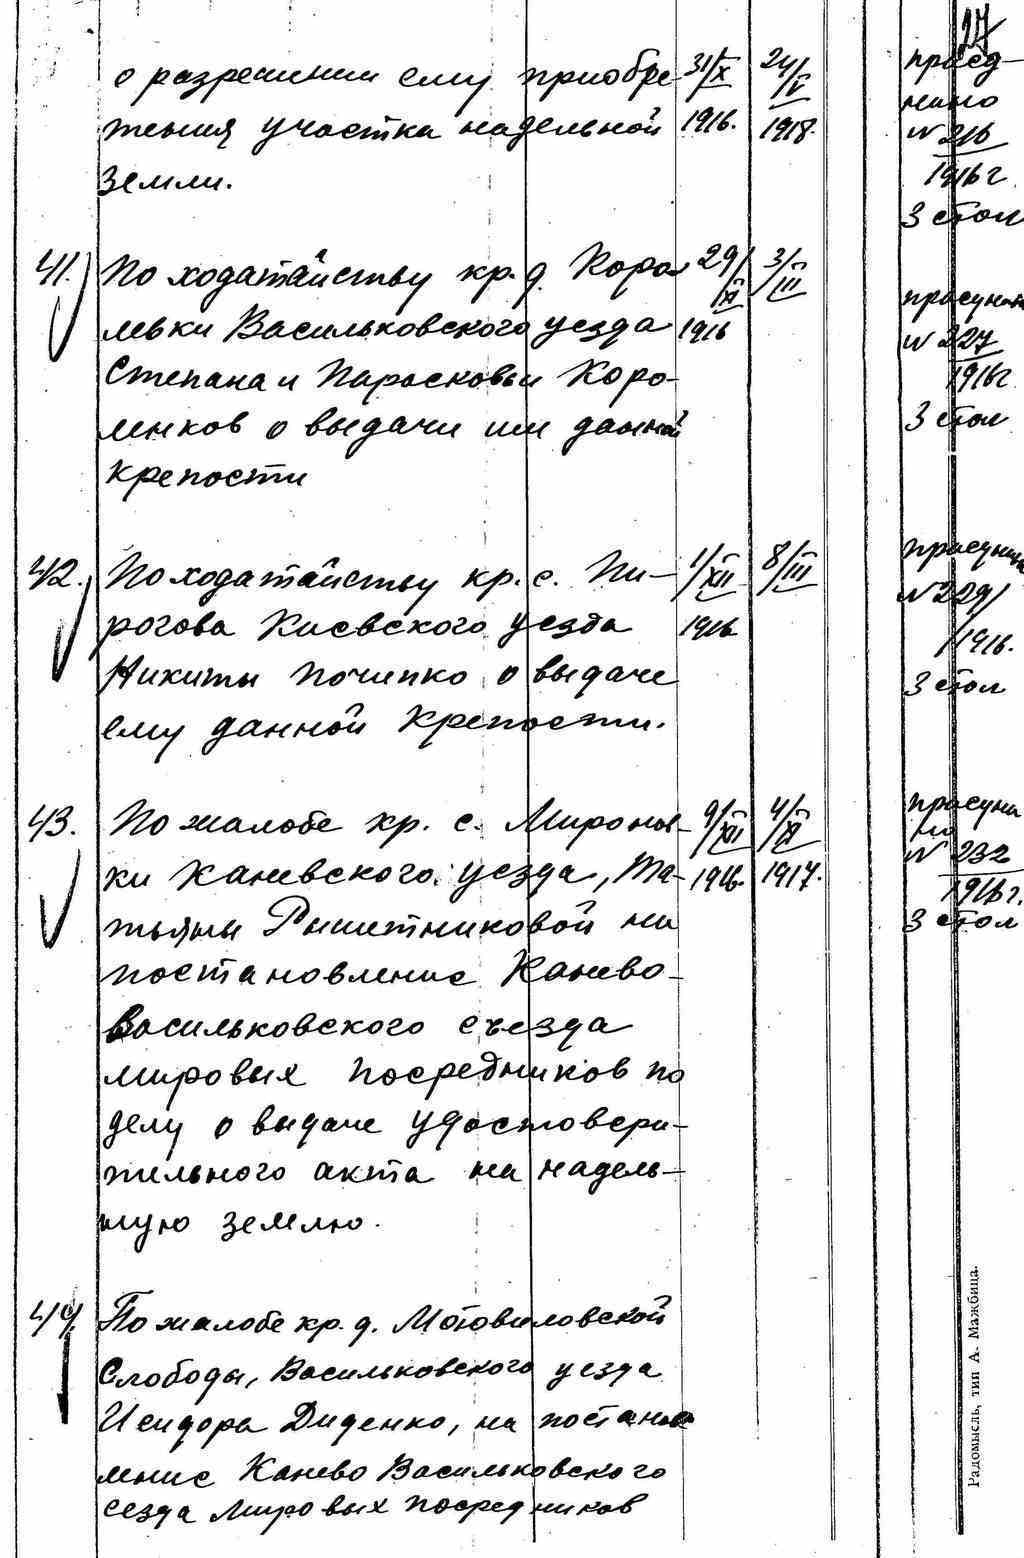 27
о разрешении ему приобре- 31/X 24/V присд-
тения участка надельной 1916. 1918. нино
земли. № 216
1916 г
3 стол
41. По ходатайству кр. д. Коро- 29/XI 3/III
левки Васильковского уезда 1916 № 227
Степана и Парасковьи Коро- 1916 г
ленков о выдачи им данной 3 стол
крепости
42. По ходатайству кр. с. Пи- 1/XII 8/III
рогова Киевского уезда 1916 № 229/
Никиты Почипко о выдаче 1916.
ему данной крепости. 3 стол
43. По жалобе кр. с. Миронов- 9/XII 4/XI
ки Каневского уезда, Та- 1916. 1917. № 232
тьяны Решетниковой на 1916 г.
постановление Канево- 3 стол
Васильковского съезда
мировых посредников по
делу о выдаче удостовери-
тельного акта на надель-
ную землю.
44. По жалобе кр. д. Мотовиловской
Слободы, Васильковского уезда
Исидора Диденко, на постанов
ление Канево Васильковского
сезда мировых посредников
Радомысль, тип А. Мажбица.